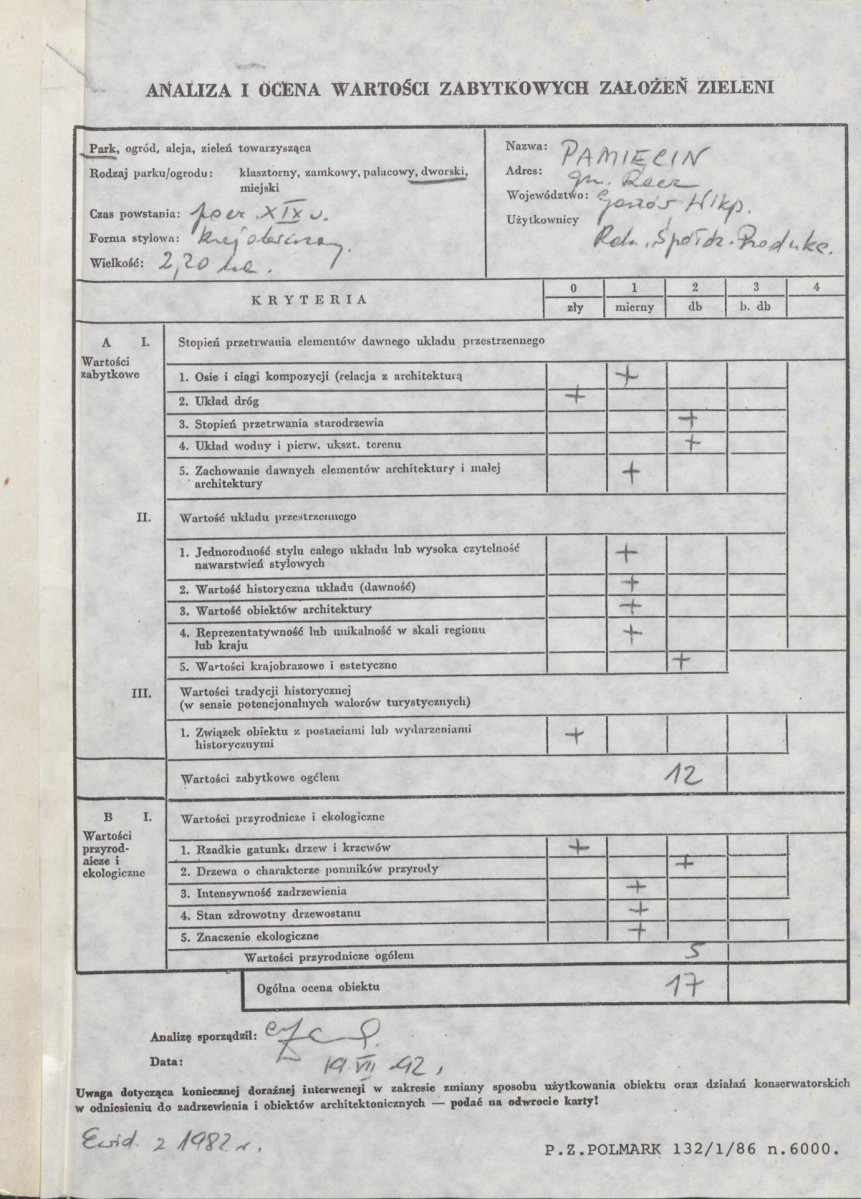 ANALIZA I OCENA WARTOŚCI ZABYTKOWYCH ZAŁOŻEŃ ZIELENI
Park, ogród, aleja, zieleń towarzysząca
Rodzaj parku/ogrodu: klasztorny, zamkowy, pałacowy, dworski,
miejski
Czas powstania: pocz. XIX w.
Forma stylowa: krajobrazowy.
Wielkość: 2,20 ha.
Nazwa: PAMIĘCIN
Adres: gm.
Województwo: Gorzów Wlkp.
Użytkownicy
Roln. Spółdz. Produkc.
KRYTERIA
0 1 2 3 4
zły mierny db b. db
A I. Stopień przetrwania elementów dawnego układu przestrzennego
Wartości
zabytkowe
1. Osie i ciągi kompozycji (relacja z architekturą +
2. Układ dróg +
3. Stopień przetrwania starodrzewia +
4. Układ wodny i pierw. ukszt. terenu +
5. Zachowanie dawnych elementów architektury i małej
architektury +
II. Wartość układu przestrzennego
1. Jednorodność stylu całego układu lub wysoka czytelność
nawarstwień stylowych +
2. Wartość historyczna układu (dawność) +
3. Wartość obiektów architektury +
4. Reprezentatywność lub unikalność w skali regionu
lub kraju +
5. Wartości krajobrazowe i estetyczne +
III. Wartości tradycji historycznej
(w sensie potencjonalnych walorów turystycznych)
1. Związek obiektu z postaciami lub wydarzeniami
historycznymi +
Wartości zabytkowe ogółem 12
B I. Wartości przyrodnicze i ekologiczne
Wartości
przyrod-
nicze i
ekologiczne
1. Rzadkie gatunki drzew i krzewów +
2. Drzewa o charakterze pomników przyrody +
3. Intensywność zadrzewienia +
4. Stan zdrowotny drzewostanu +
5. Znaczenie ekologiczne +
Wartości przyrodnicze ogółem 5
Ogólna ocena obiektu 17
Analizę sporządził:
Data: 19 VII 92,
Uwaga dotycząca koniecznej doraźnej interwencji w zakresie zmiany sposobu użytkowania obiektu oraz działań konserwatorskich
w odniesieniu do zadrzewienia i obiektów architektonicznych — podać na odwrocie karty!
Ewid. z 1982 r.
P.Z.POLMARK 132/1/86 n.6000.